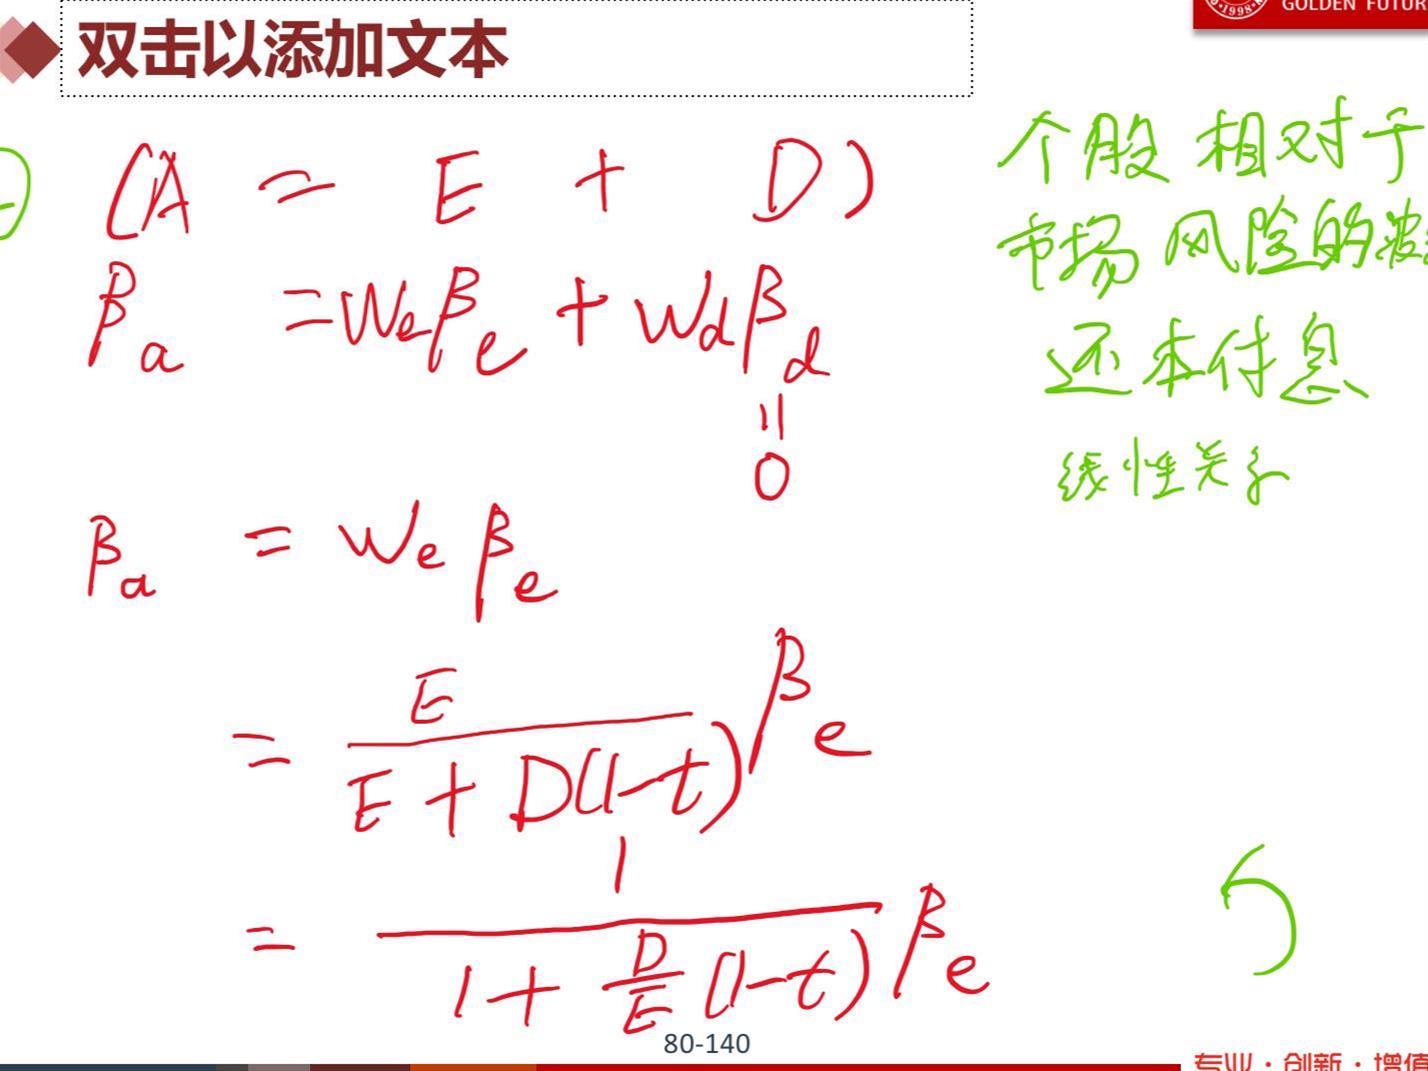 GOLDEN FUTUR
双击以添加文本
(A = E + D)
βa = Weβe + Wdβd
=
0
βa = We βe
= E / E + D(1-t) βe
= 1 / 1 + D/E (1-t) βe
个股相对于
市场风险的波
还本付息
线性关系
80-140
专业·创新·增值